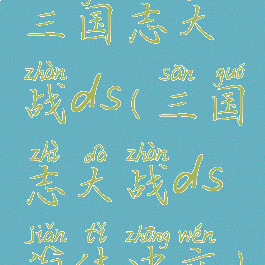 三国志大
zhàn sān guó
战ds(三国
zhì dà zhàn
志大战ds
jiǎn tǐ zhōng wén
简体中文)